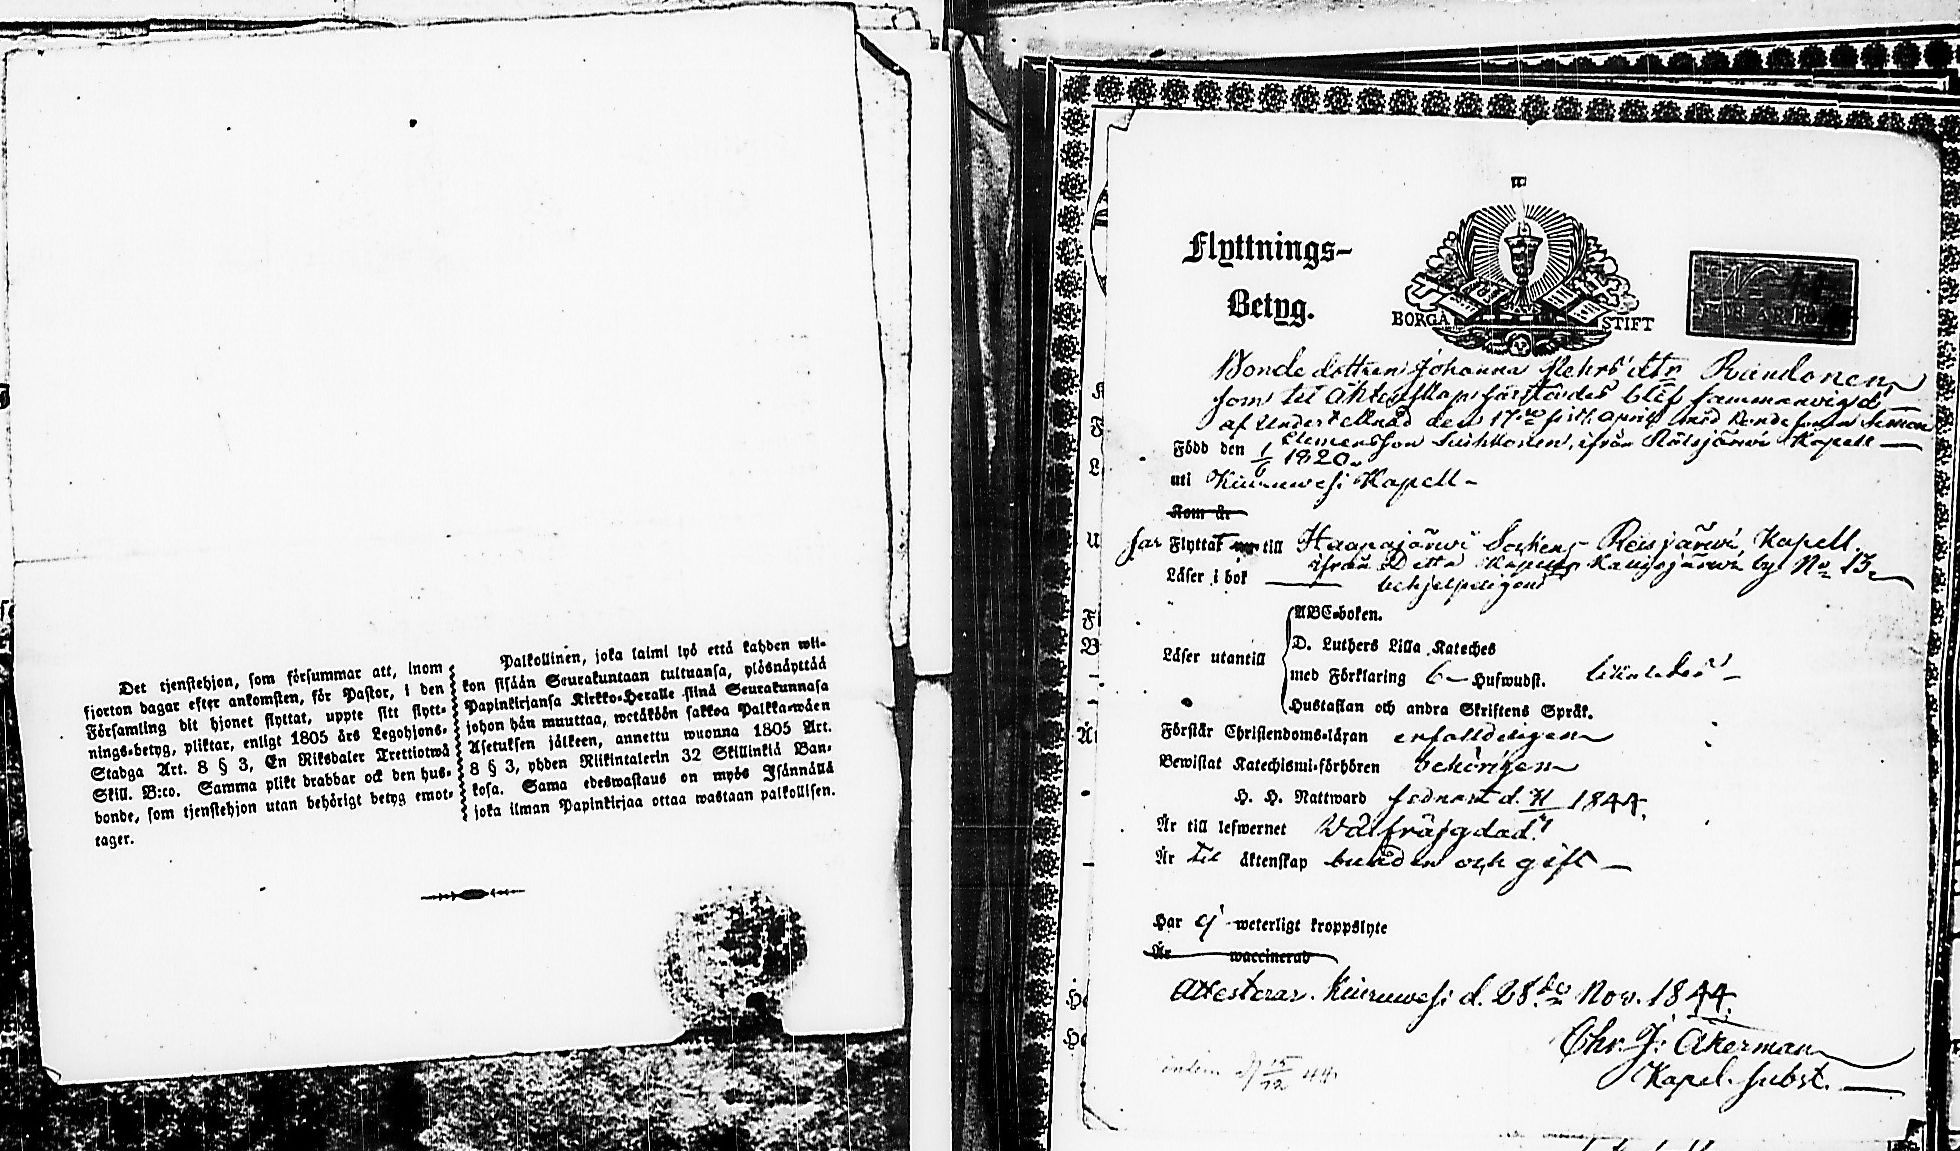 Det tjenstehjon, som försummar att, inom
fjorton dagar efter ankomsten, för Pastor, i den
Församling dit hjonet flyttat, uppte sitt flytt-
nings-betyg, pliktar, enligt 1805 års Legohjons-
Stadga Art. 8 § 3, En Riksdaler Trettiotwå
Skill. B:co. Samma plikt drabbar ock den hus-
bonde, som tjenstehjon utan behörigt betyg emot-
tager.
Palkollinen, joka laimi lyö että kahden wii-
kon sisään Seurakuntaan tultuansa, ylösnäyttää
Papinkirjansa Kirkko-Heralle siinä Seurakunnasa
johon hän muuttaa, wetäköön sakkoa Palkka-wäen
Asetuksen jälkeen, annettu wuonna 1805 Art.
8 § 3, yhden Riikintalerin 32 Skillinkiä Ban-
kosa. Sama edeswastaus on myös Isännällä
joka ilman Papinkirjaa ottaa wastaan palkollisen.
Flyttnings-
Betyg.
BORGÅ STIFT
N:o
FÖR ÅR 18
Bonde dottren Johanna Pehrs dttr
som til Äktenskaps blef sammanvigd
af Undertecknad den 17de sistl. April med Bondesonen Simon
Clemensson ifrån Reisjärvi Kapell
Född den 1/6 1820.
uti Kiuruwesi Kapell
Kom år
far Flyttat till Haapajärwi Sockens Reisjärwi Kapell
ifrån Detta by No 13
Läser i bok behjelpeligen
Läser utantill
ABC-boken.
D. Luthers Lilla Kateches
med Förklaring 6 Hufwudst.
Hustaflan och andra Skriftens Språk.
Förstår Christendoms-läran enfalldeligen
Bewistat Katechismi-förhören behörigen
H. H. Nattward sednast d. 1844.
Är till lefwernet Wälfräjgdad
Är til äktenskap bunden och gift
Har ej weterligt kroppslyte
Är waccinerad
Attesterar. Kiuruwesi d. 28de Nov. 1844.
Chr. J. Åkerman
Kapel. Subst.
15/12 44